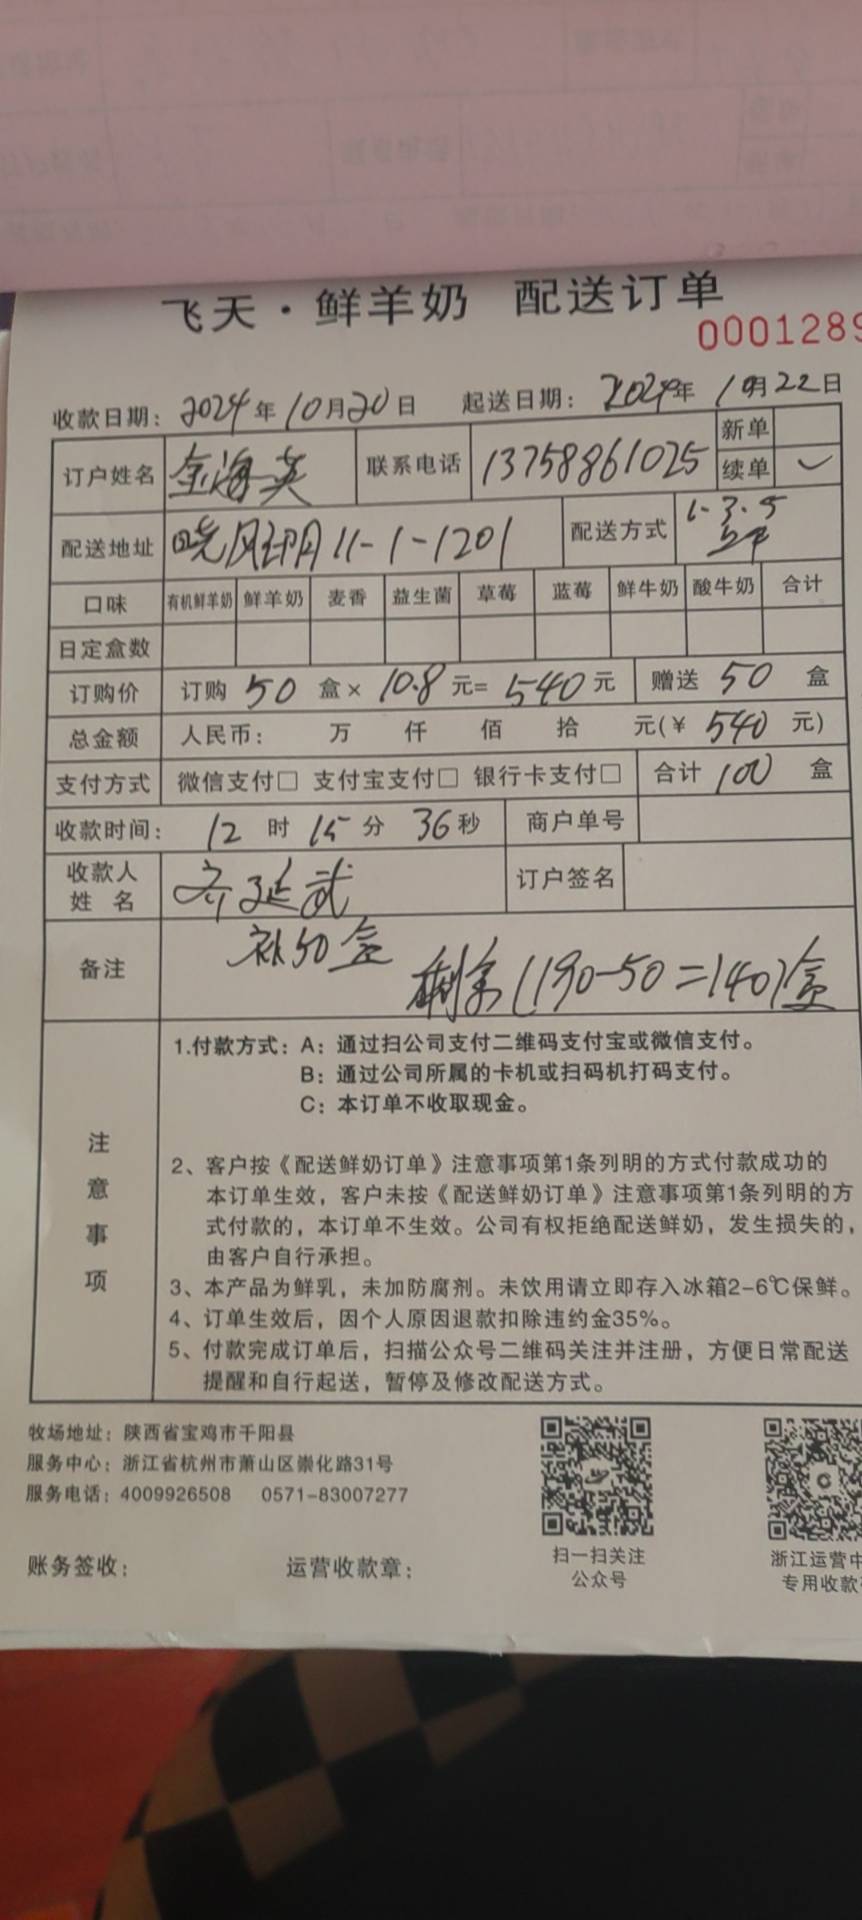 飞天·鲜羊奶 配送订单
0001289
收款日期: 2024年10月20日 起送日期: 2024年10月22日
订户姓名 金海英 联系电话 13758861025 新单
续单 ✓
配送地址 晓风印月11-1-1201 配送方式 1.3.5
口味 有机鲜羊奶 鲜羊奶 麦香 益生菌 草莓 蓝莓 鲜牛奶 酸牛奶 合计
日定盒数
订购价 订购 50 盒× 10.8 元= 540 元 赠送 50 盒
总金额 人民币: 万 仟 佰 拾 元(¥ 540 元)
支付方式 微信支付□ 支付宝支付□ 银行卡支付□ 合计 100 盒
收款时间: 12 时 15 分 36 秒 商户单号
收款人 姓名 齐延武 订户签名
备注 补50盒
剩余(190-50=140)盒
注意事项
1.付款方式:A:通过扫公司支付二维码支付宝或微信支付。
B:通过公司所属的卡机或扫码机打码支付。
C:本订单不收取现金。
2、客户按《配送鲜奶订单》注意事项第1条列明的方式付款成功的
本订单生效,客户未按《配送鲜奶订单》注意事项第1条列明的方
式付款的,本订单不生效。公司有权拒绝配送鲜奶,发生损失的,
由客户自行承担。
3、本产品为鲜乳,未加防腐剂。未饮用请立即存入冰箱2-6℃保鲜。
4、订单生效后,因个人原因退款扣除违约金35%。
5、付款完成订单后,扫描公众号二维码关注并注册,方便日常配送
提醒和自行起送,暂停及修改配送方式。
牧场地址:陕西省宝鸡市千阳县
服务中心:浙江省杭州市萧山区崇化路31号
服务电话:4009926508 0571-83007277
扫一扫关注
公众号
浙江运营中
专用收款
账务签收: 运营收款章: